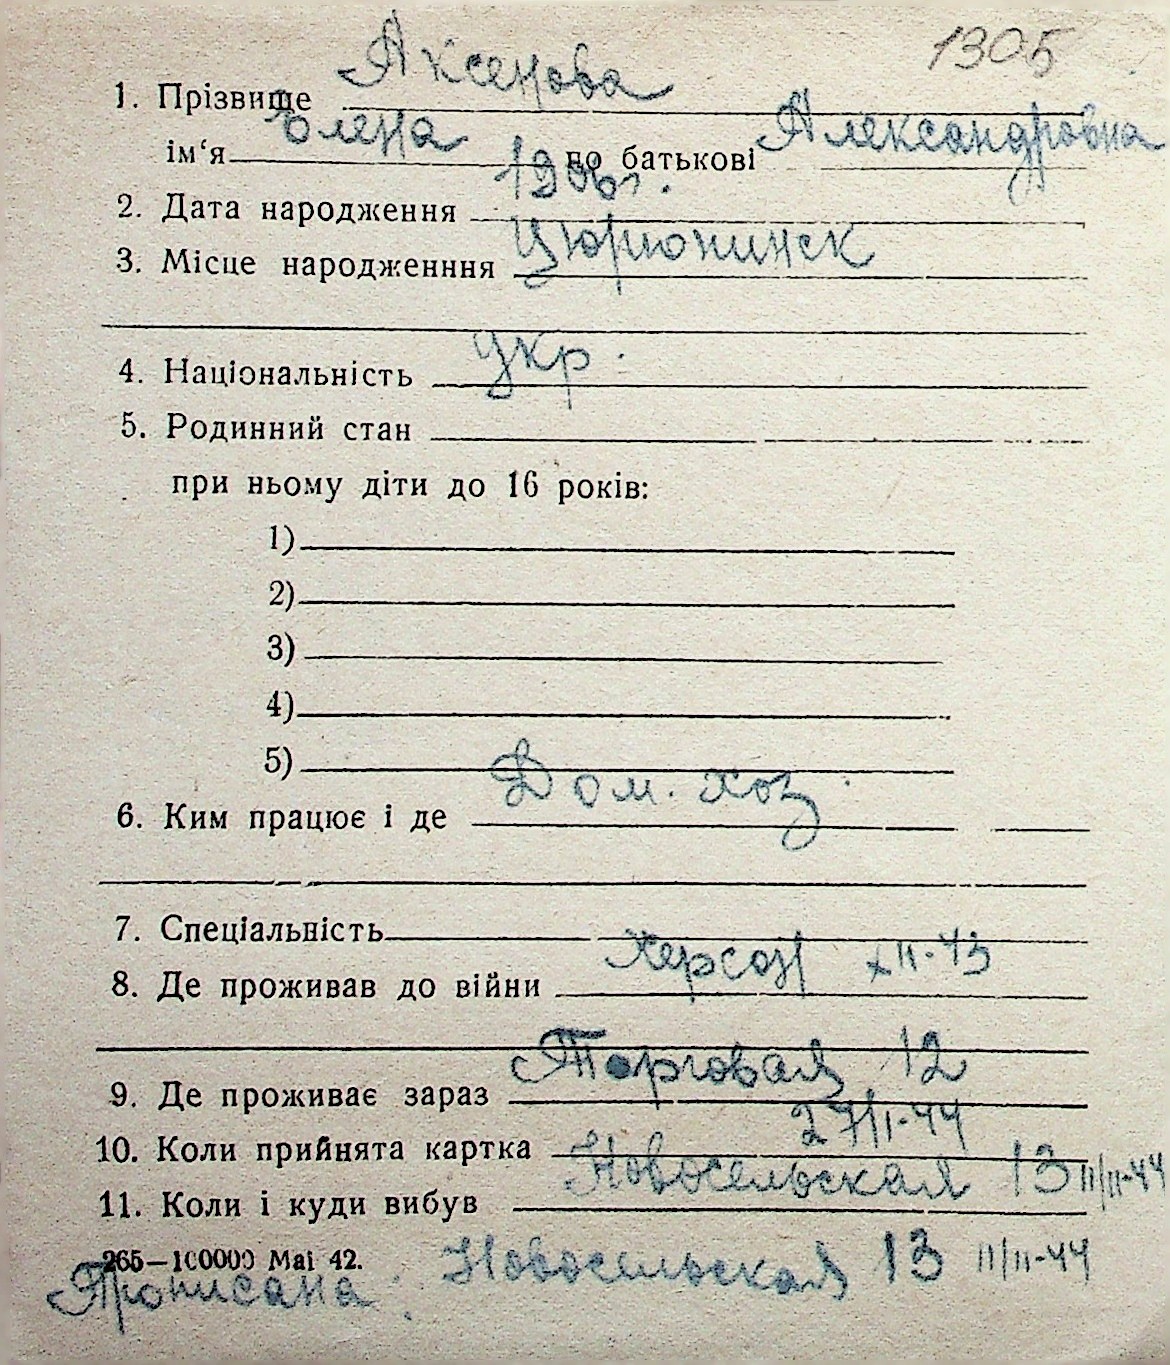 1305
1. Прізвище Аксенова
ім‘я Елена по батькові Александровна
2. Дата народження
3. Місце народженння Цюрюпинск
4. Національність укр.
5. Родинний стан
при ньому діти до 16 років:
1)
2)
3)
4)
5)
6. Ким працює і де Дом. хоз.
7. Спеціальність
8. Де проживав до війни Херсон XII-43
9. Де проживає зараз Торговая 12
10. Коли прийнята картка 27/I-44
11. Коли і куди вибув Новосельская 13 11/II-44
265—100000 Mai 42.
Прописана: Новосельская 13 11/II-44